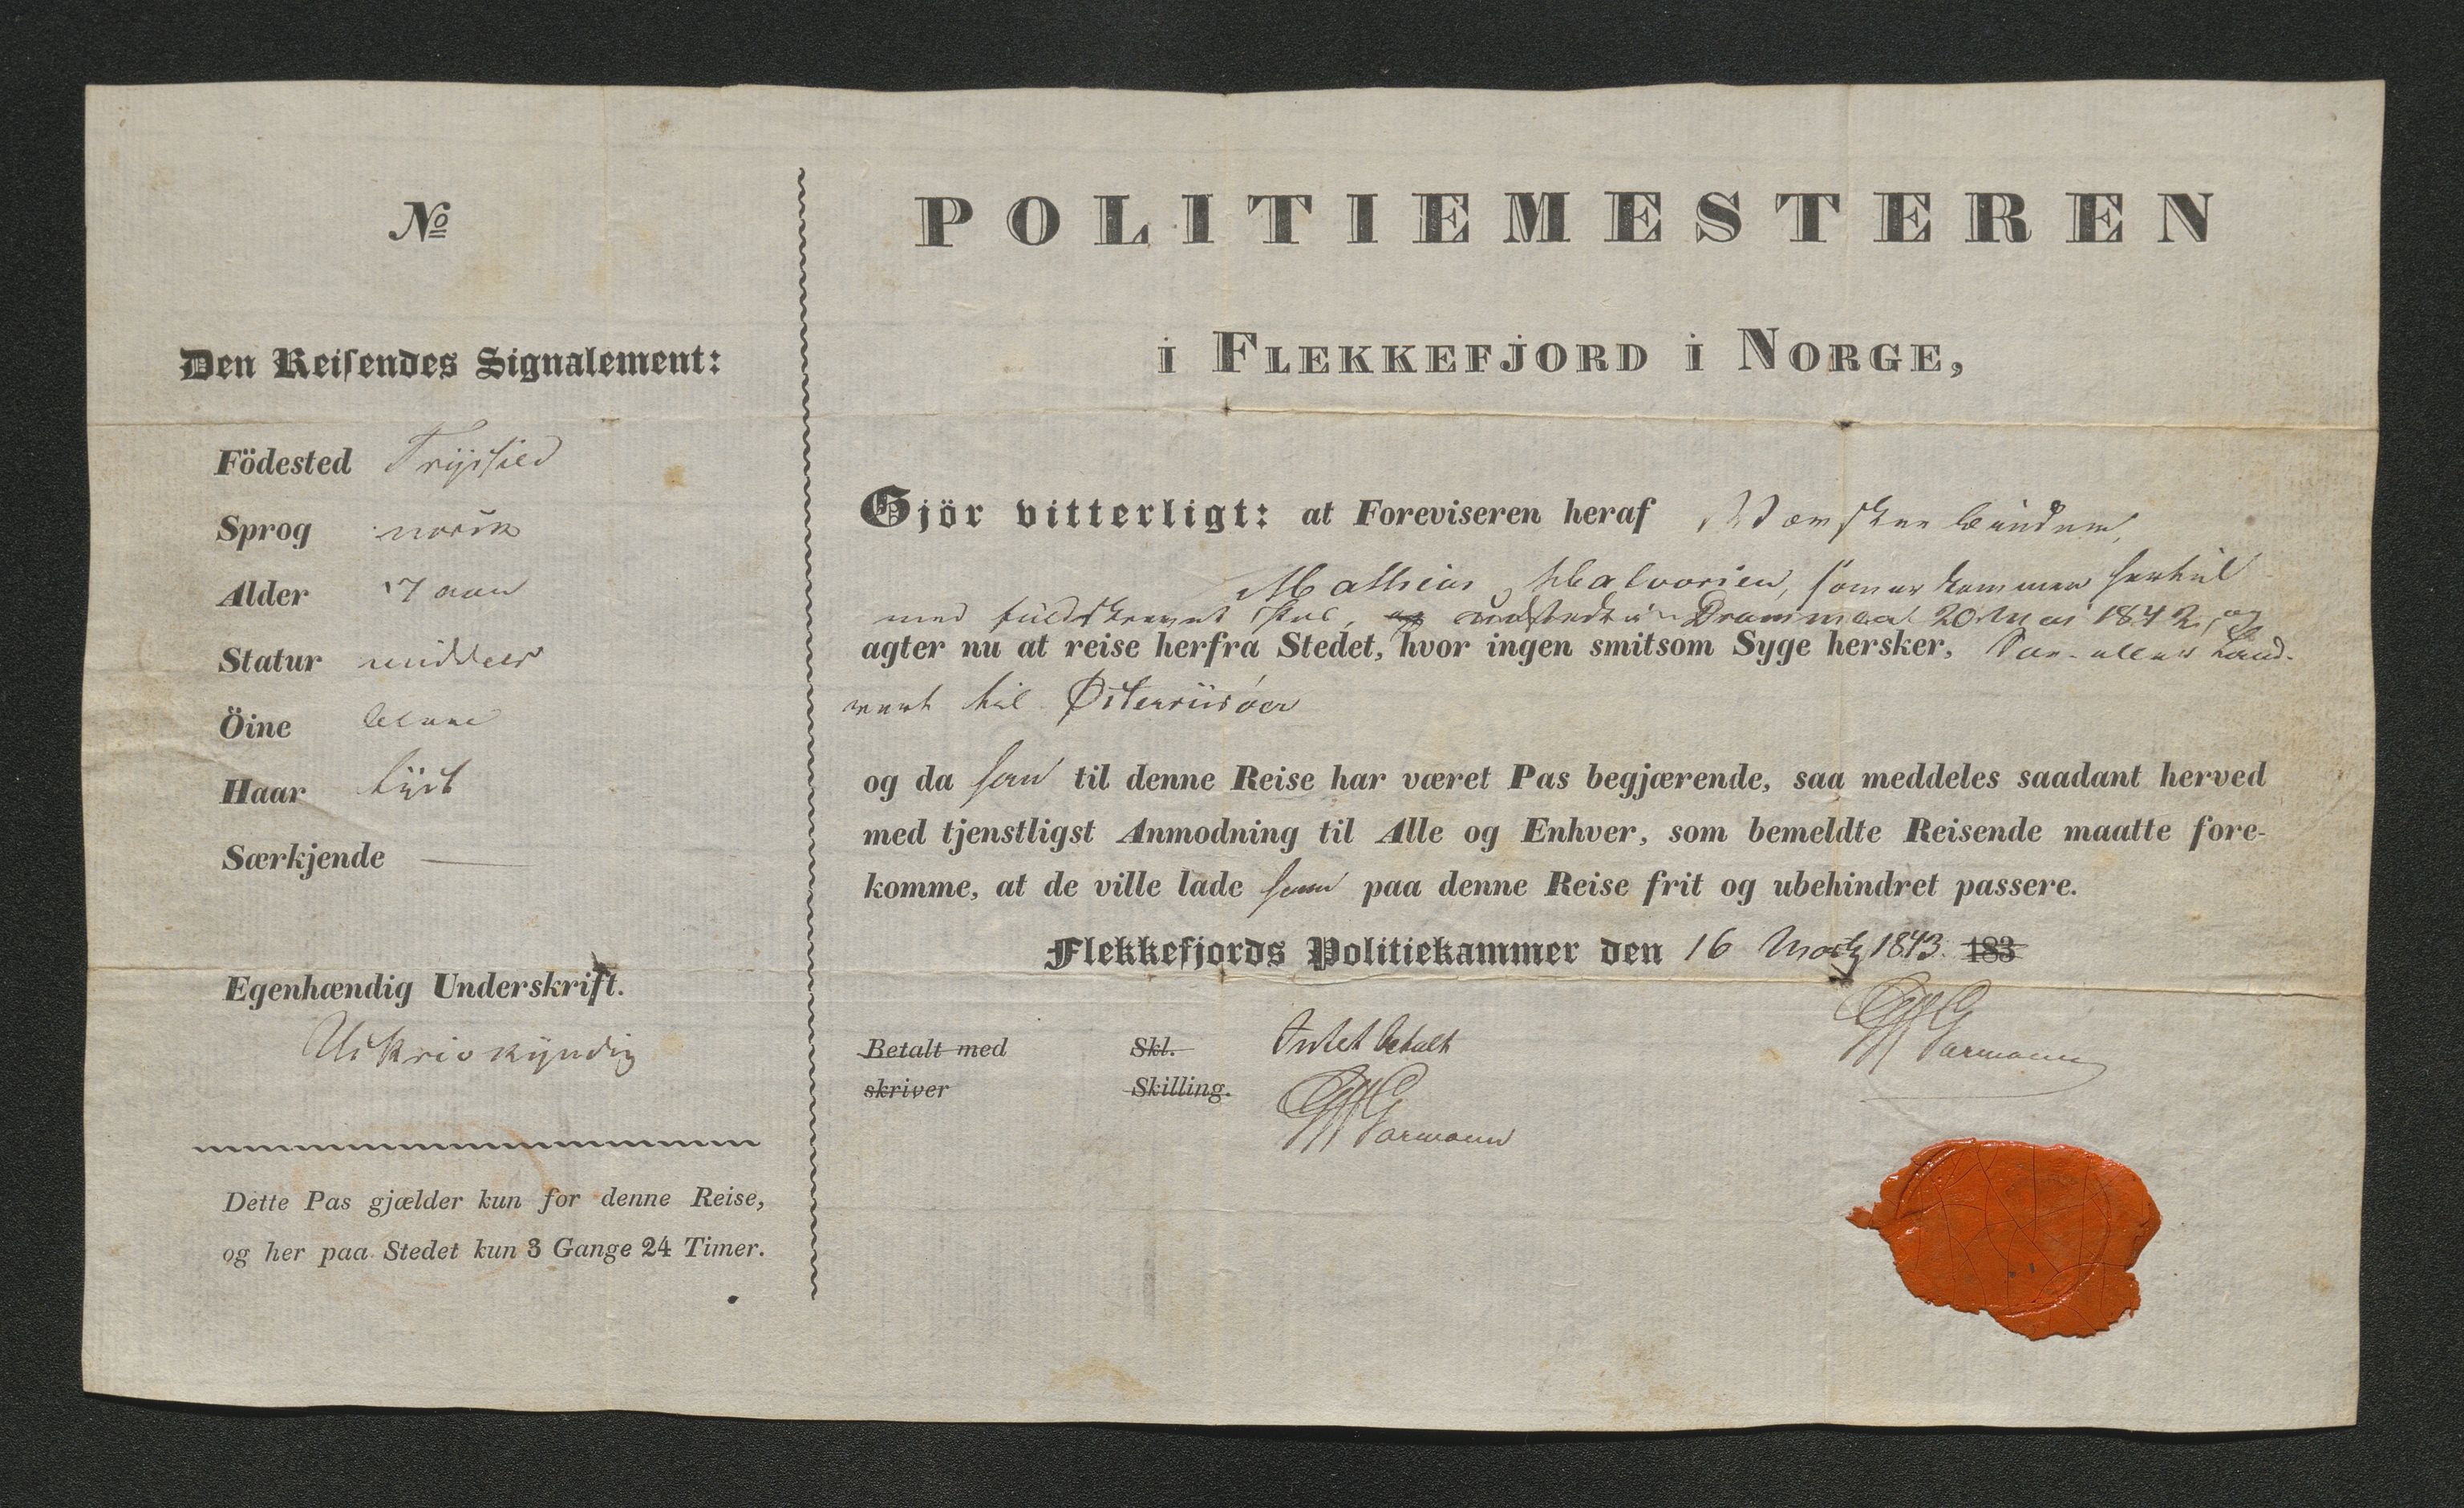 No
Den Reisendes Signalement:
Födested Trysild
Sprog norsk
Alder 17 aar
Statur middels
Öine blaae
Haar lyst
Særkjende —
Egenhændig Underskrift.
Uskrivkyndig
Dette Pas gjælder kun for denne Reise,
og her paa Stedet kun 3 Gange 24 Timer.
POLITIEMESTEREN
i FLEKKEFJORD i NORGE,
Gjör vitterligt: at Foreviseren heraf
Mathias Halvorsen, som er kommen hertil
med fuldskrevet Pas, udstedt i Drammen 20 Mai 1842, og
agter nu at reise herfra Stedet, hvor ingen smitsom Syge hersker, Søe- eller Land-
verts til Østerriisöer
og da han til denne Reise har været Pas begjærende, saa meddeles saadant herved
med tjenstligst Anmodning til Alle og Enhver, som bemeldte Reisende maatte fore-
komme, at de ville lade ham paa denne Reise frit og ubehindret passere.
Flekkefjords Politiekammer den 16 Marts 1843. 183
Garmann
Betalt med Skl. Intet betalt
skriver Skilling.
Garmann